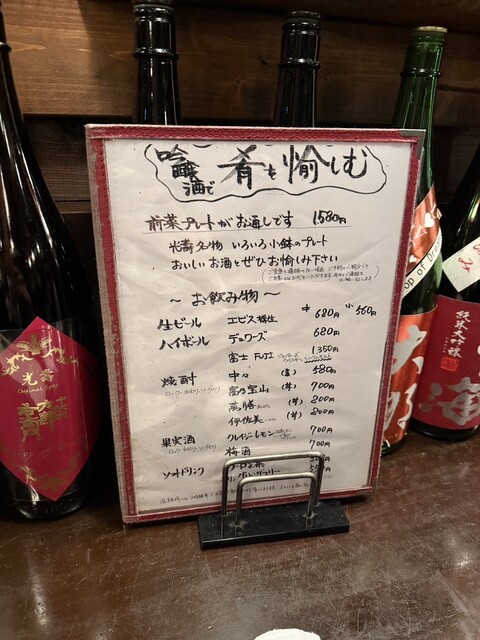 吟醸酒で 肴を愉しむ
前菜プレートがお通しです 1580円
光壽名物 いろいろ小鉢のプレート
おいしいお酒とぜひお愉しみ下さい
～お飲み物～
生ビール ヱビス樽生 中 680円 小 560円
ハイボール デュワーズ 680円
富士 FUJI 1,350円
焼酎 中々 (麦) 580円
富乃宝山 (芋) 700円
萬膳 (芋) 800円
伊佐美 (芋) 800円
果実酒 クレイジーレモン 700円
梅酒 700円
ソフトドリンク ウーロン茶
光壽
Original Sake
純米大吟醸
海